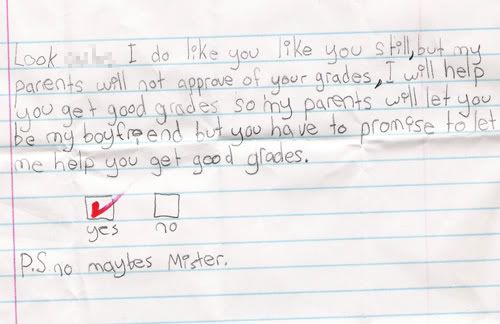 Look I do like you like you still, but my
parents will not approve of your grades, I will help
you get good grades so my parents will let you
be my boyfreend but you have to promise to let
me help you get good grades.
yes no
P.S. no maybes Mister.